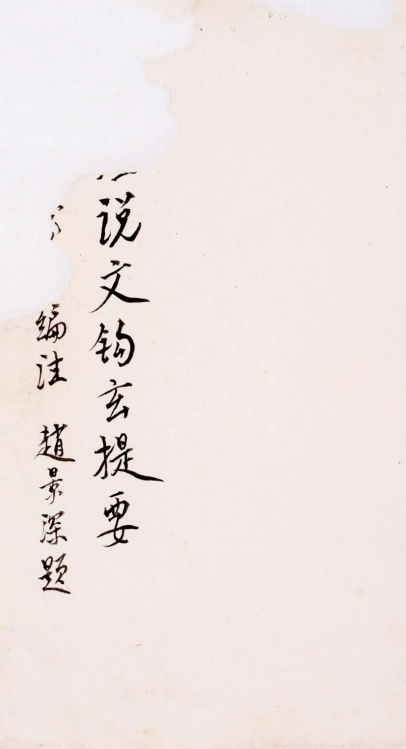 说文钩玄提要
编注 趙景深题